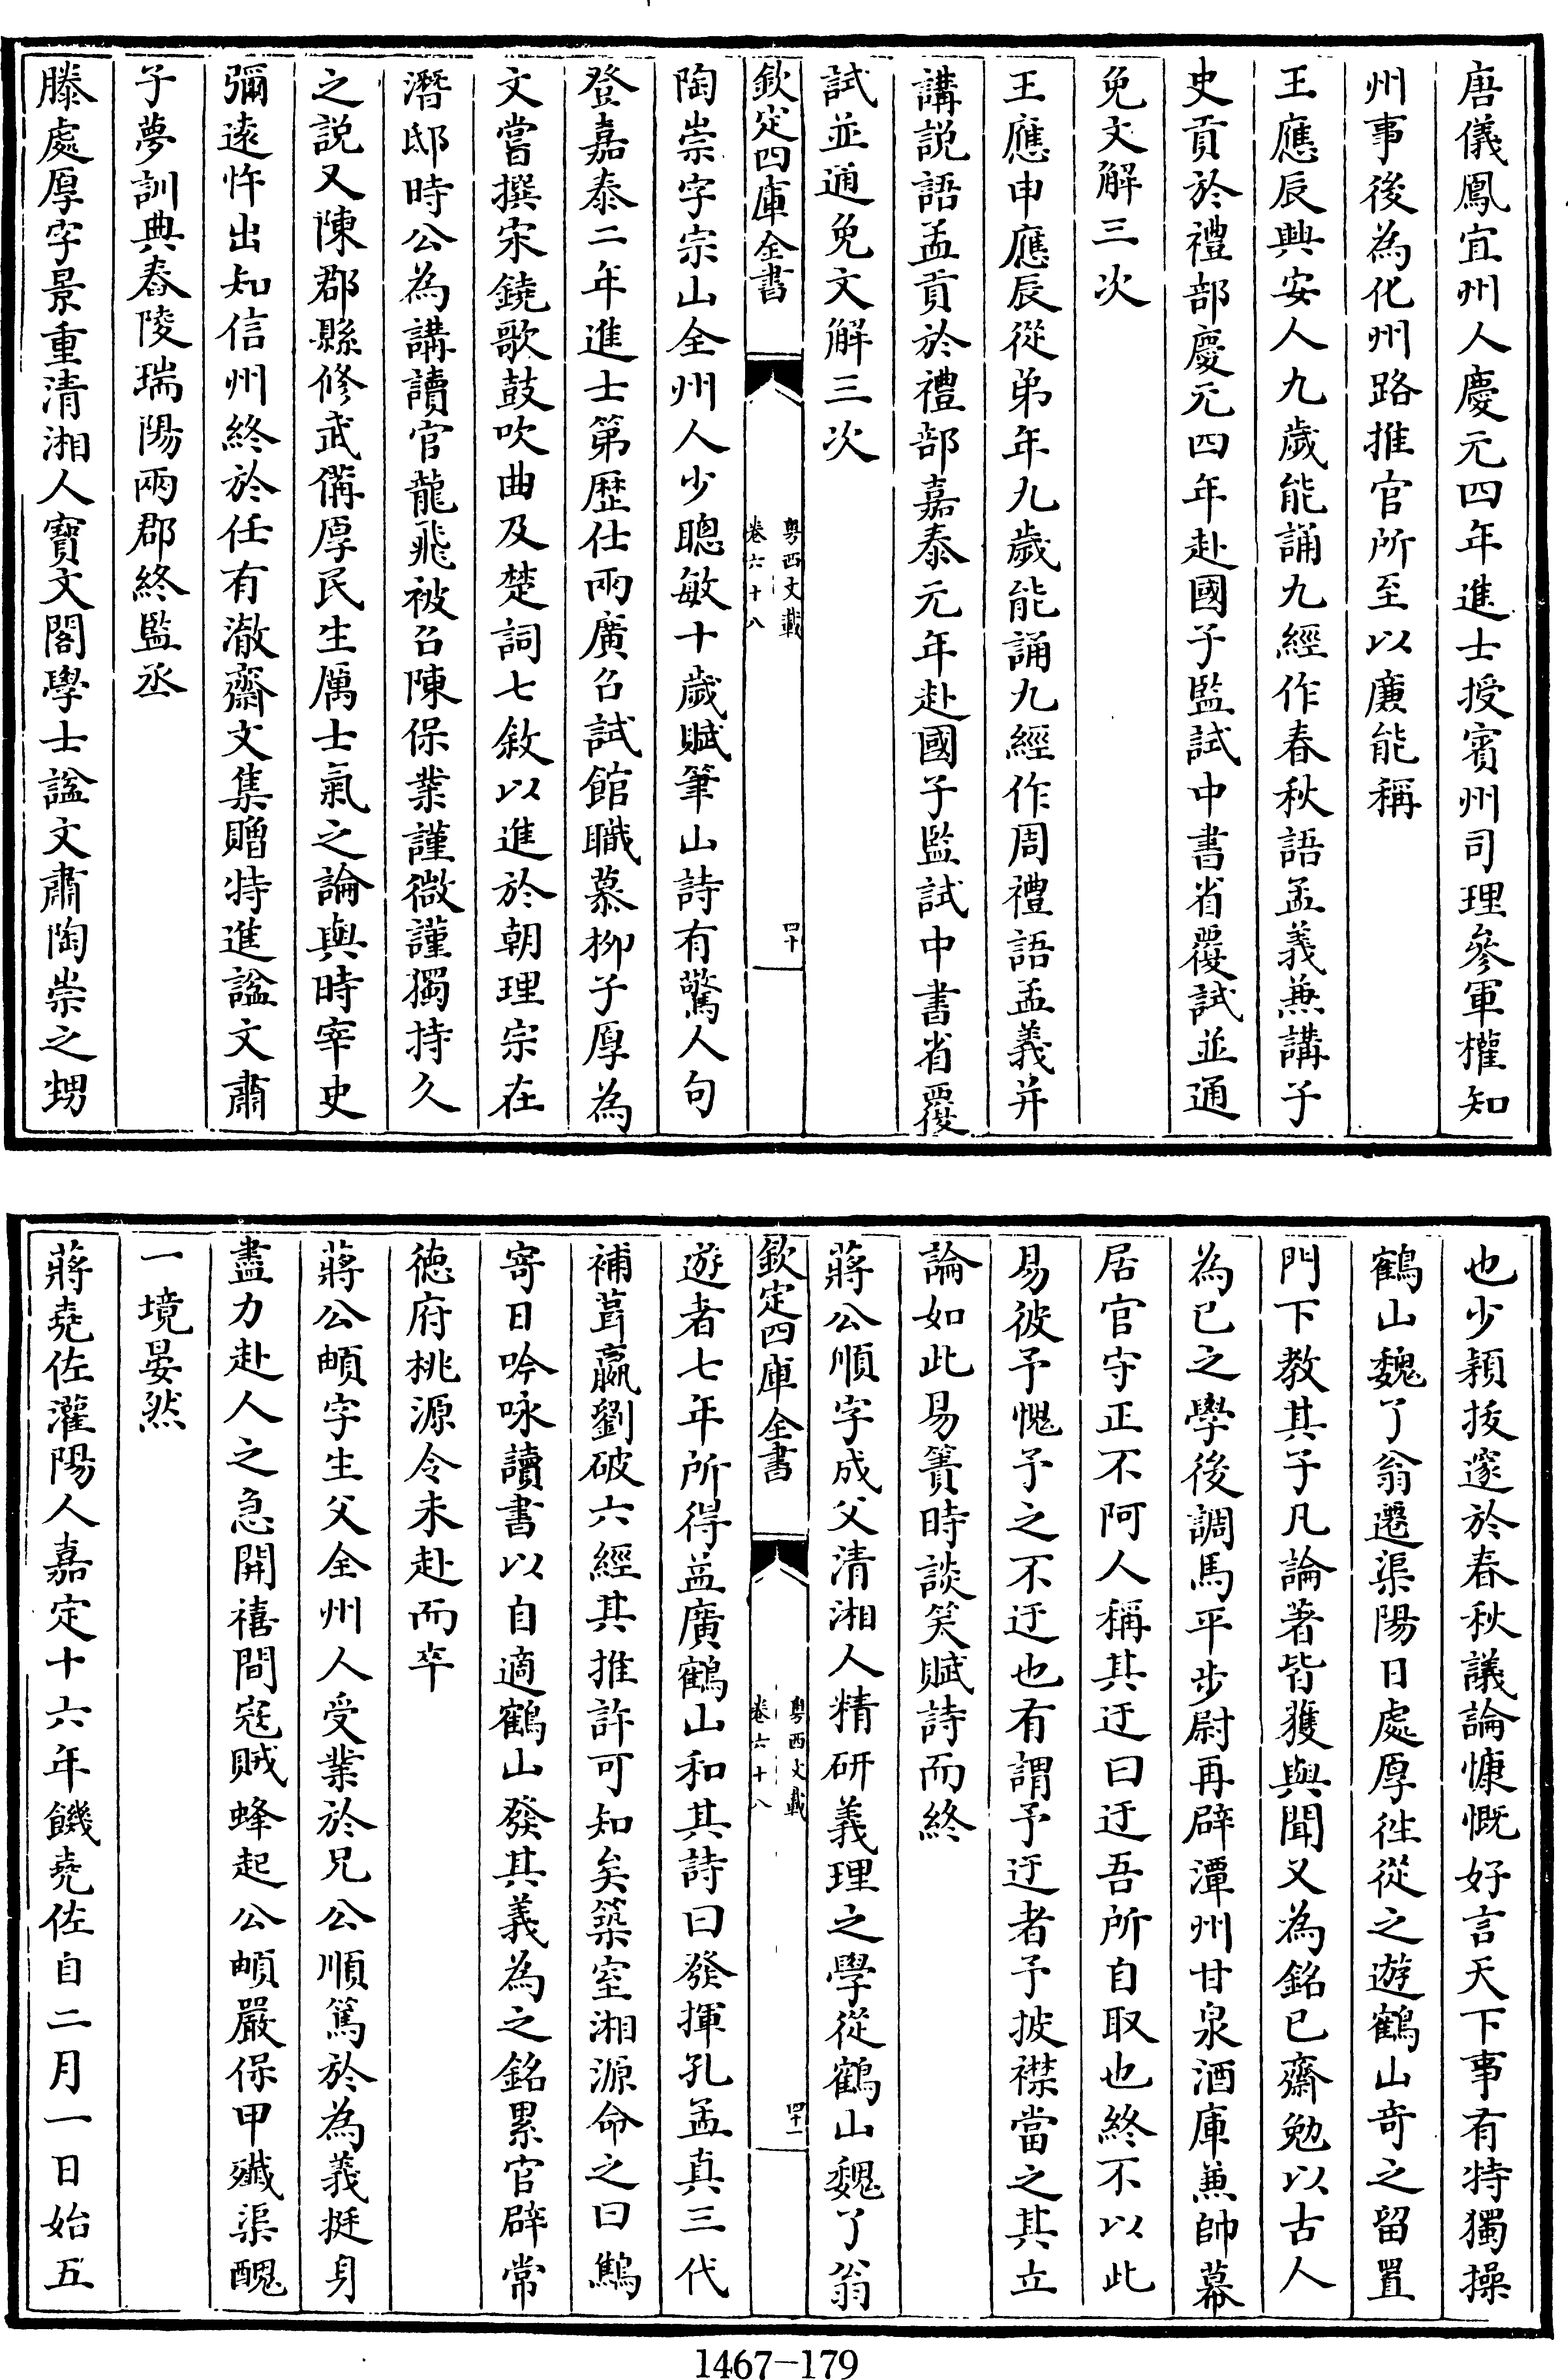 唐儀鳳宜州人慶元四年進士授賓州司理參軍權知
州事後為化州路推官所至以廉能稱
王應辰興安人九歲能誦九經作春秋語孟義兼講子
史貢於禮部慶元四年赴國子監試中書省覆試並通
免文解三次
王應申應辰從弟年九歲能誦九經作周禮語孟義并
講説語孟貢於禮部嘉泰元年赴國子監試中書省覆
試並通免文解三次
欽定四庫全書
粵西文載
卷六十八
四十
陶崇字宗山全州人少聰敏十歲賦筆山詩有驚人句
登嘉泰二年進士第歴仕兩廣召試館職慕柳子厚為
文嘗撰宋鐃歌鼓吹曲及楚詞七敘以進於朝理宗在
潛邸時公為講讀官龍飛被召陳保業謹微謹獨持久
之説又陳郡縣修武備厚民生厲士氣之論與時宰史
彌遠忤出知信州終於任有澈齋文集贈特進諡文肅
子夢訓典舂陵瑞陽兩郡終監丞
滕處厚字景重清湘人寶文閣學士諡文肅陶崇之甥
也少穎拔邃於春秋議論慷慨好言天下事有特獨操
鶴山魏了翁遷渠陽日處厚往從之遊鶴山奇之留置
門下教其子凡論著皆獲與聞又為銘已齋勉以古人
為已之學後調馬平步尉再辟潭州甘泉酒庫兼帥幕
居官守正不阿人稱其迂曰迂吾所自取也終不以此
易彼予愧予之不迂也有謂予迂者予披襟當之其立
論如此易簀時談笑賦詩而終
蔣公順字成父清湘人精研義理之學從鶴山魏了翁
欽定四庫全書
粵西文載
卷六十八
四十一
遊者七年所得益廣鶴山和其詩曰發揮孔孟真三代
補葺嬴劉破六經其推許可知矣築室湘源命之曰鷦
寄日吟咏讀書以自適鶴山發其義為之銘累官辟常
徳府桃源令未赴而卒
蔣公頔字生父全州人受業於兄公順篤於為義挺身
盡力赴人之急開禧間寇賊蜂起公頔嚴保甲殱渠醜
一境晏然
蔣堯佐灌陽人嘉定十六年饑堯佐自二月一日始五
1467-179